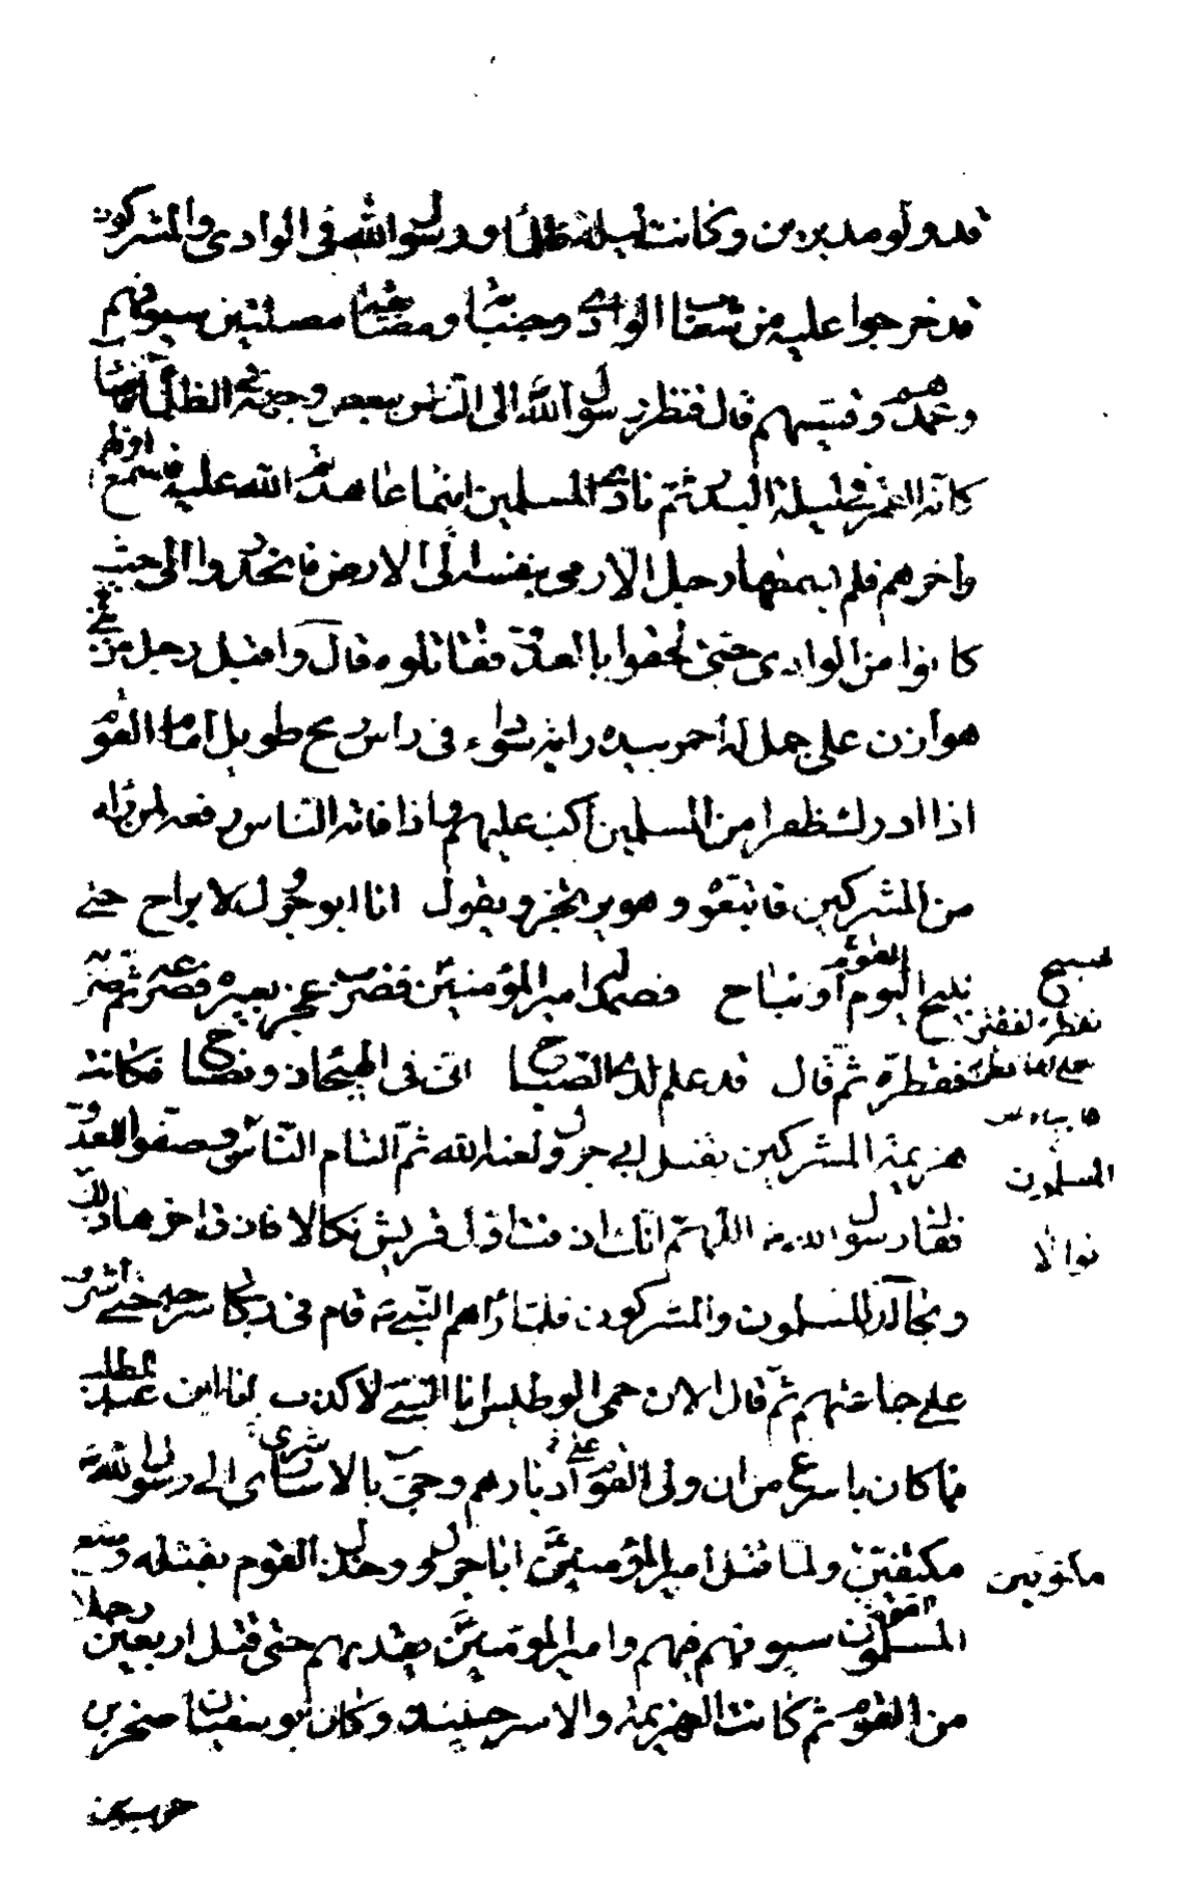 قد ولوا مدبرين وكانت ليلة ظلماء ورسول الله في الوادي والمشركون
قد خرجوا عليه من شعاب الوادي وجنباته ومضايقه مصلتين سيوفهم
وعمدهم وقسيهم قال فنظر رسول الله الى الناس ببعض وجهه في الظلماء فاضاء
كانه القمر في ليلة البدر ثم نادى المسلمين اينما عاهدتم الله عليه فاسمع اولهم
واخرهم فلم يسمعها رجل الا رمى بنفسه الى الارض فانحدروا الى حيث
كانوا من الوادي حتى لحقوا بالعدو فقاتلوه قال واقبل رجل من
هوازن على جمل له احمر بيده راية سوداء في راس رمح طويل امام القوم
اذا ادرك ظفرا من المسلمين اكب عليهم واذا فاته الناس رفعه لمن وراءه
من المشركين فاتبعوه وهو يرتجز ويقول انا ابو جرول لا براح حتى
نبيح اليوم القوم او نباح فصمد له امير المؤمنين فضرب عجز بعيره فصرعه ثم ضربه
فقطره ثم قال قد علم لدى الصباح اني في الهيجاء ذو نصاح فكانت
هزيمة المشركين بقتل ابي جرول لعنه الله ثم التام الناس وصفوا للعدو
فقال رسول الله اللهم انك اذقت اول قريش نكالا فاذق اخرها
وتجالد المسلمون والمشركون فلما راهم النبي قام في ركابي سرجه حتى اشرف
على جماعتهم ثم قال الان حمي الوطيس انا النبي لا كذب انا ابن عبد المطلب
فما كان باسرع من ان ولى القوم على ادبارهم وجيء بالاسارى الى رسول الله
مكتفين ولما قتل امير المؤمنين ابا جرول وخذل القوم بقتله وضع
المسلمون سيوفهم فيهم وامير المؤمنين يقدمهم حتى قتل اربعين رجلا
من القوم ثم كانت الهزيمة والاسر حينئذ وكان ابو سفيان صخر بن
حرب بن
المسلمون
نوالا
مكتوفين